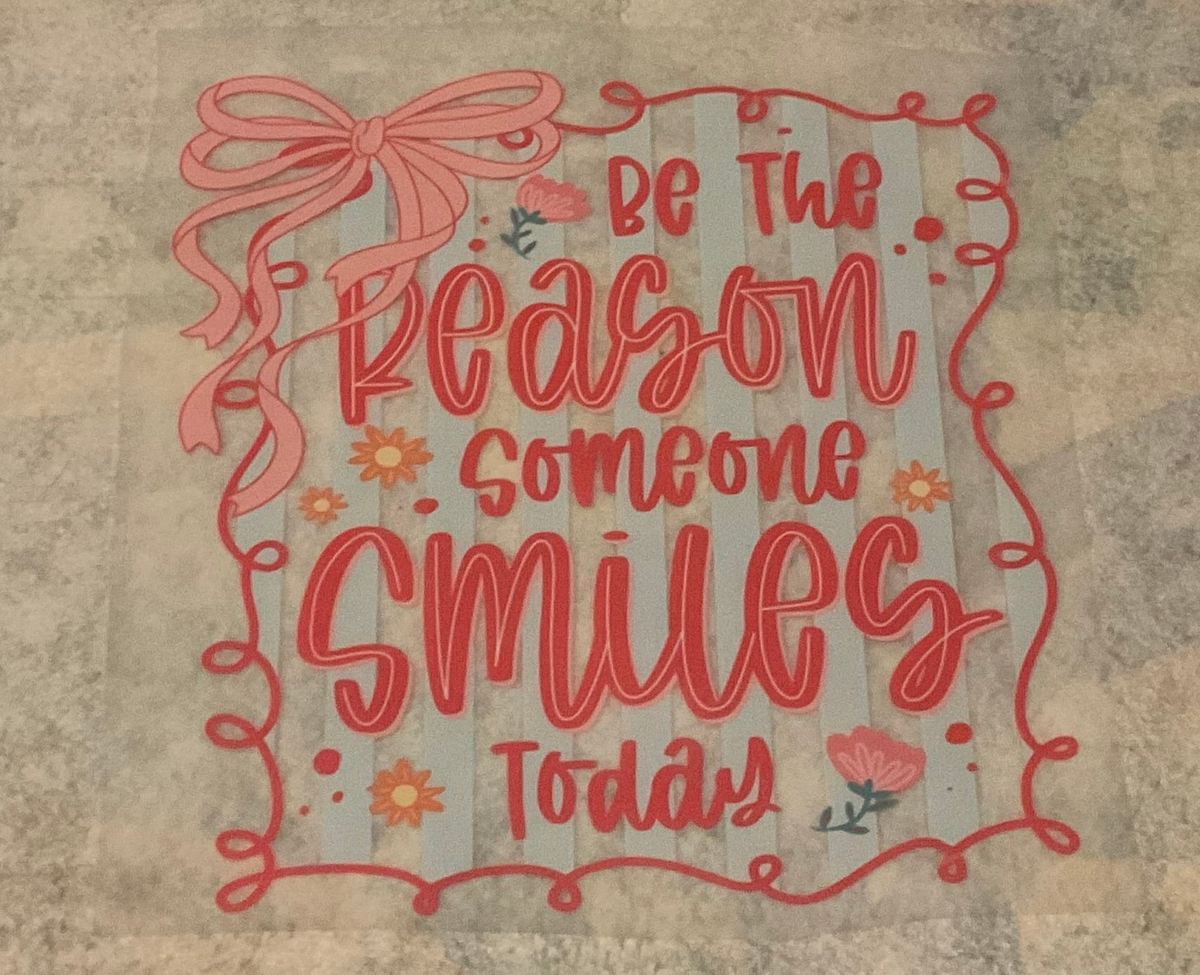 Be The
Reason
Someone
Smiles
Today